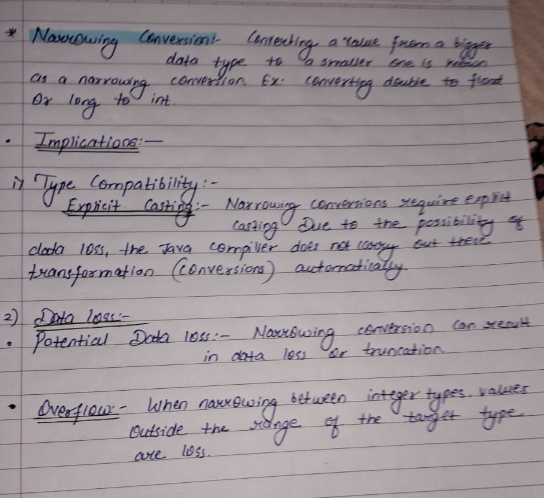 * Narrowing Conversion:- Converting a value from a bigger
data type to a smaller one is known
as a narrowing conversion. Ex: converting double to float
or long to int.
• Implications:—
1) Type Compatibility:-
Explicit Casting:- Narrowing conversions require explicit
casting Due to the possibility of
data loss, the Java compiler does not carry out these
transformation (conversions) automatically.
2) Data loss:-
• Potential Data loss:- Narrowing conversion can result
in data loss or truncation
• Overflow:- When narrowing between integer types. values
outside the range of the target type
are loss.